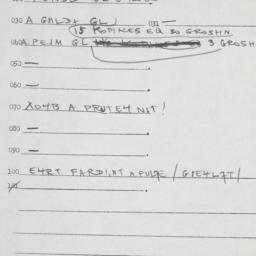 030 A GMLDX GL 031 —
15 KOPIKES EQ 30 GROSHN
040 A PEJM GL 3 GROSH
050 —
060 —
070 XO4B A PRNTE4 NIT!
080 —
090 —
200 E4RT FARDINT A FULGE / GIE4LGT/
201